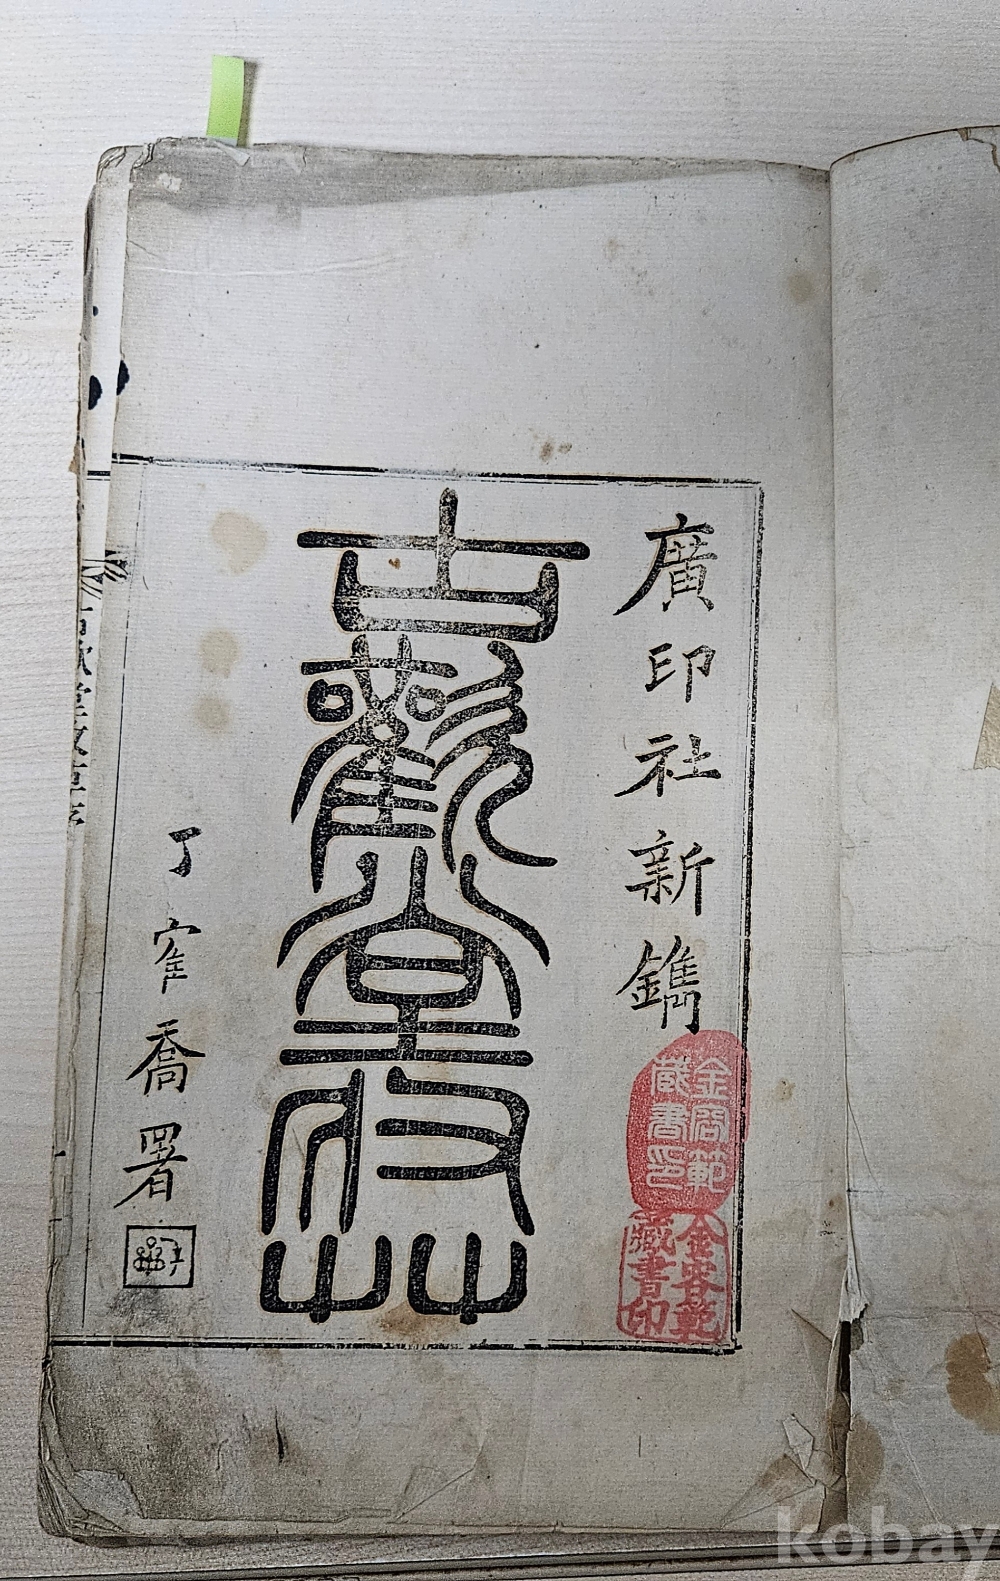 廣印社新鐫
古歡堂收艸
丁寉喬署
金容範
藏書印
金容範
藏書印
kobay